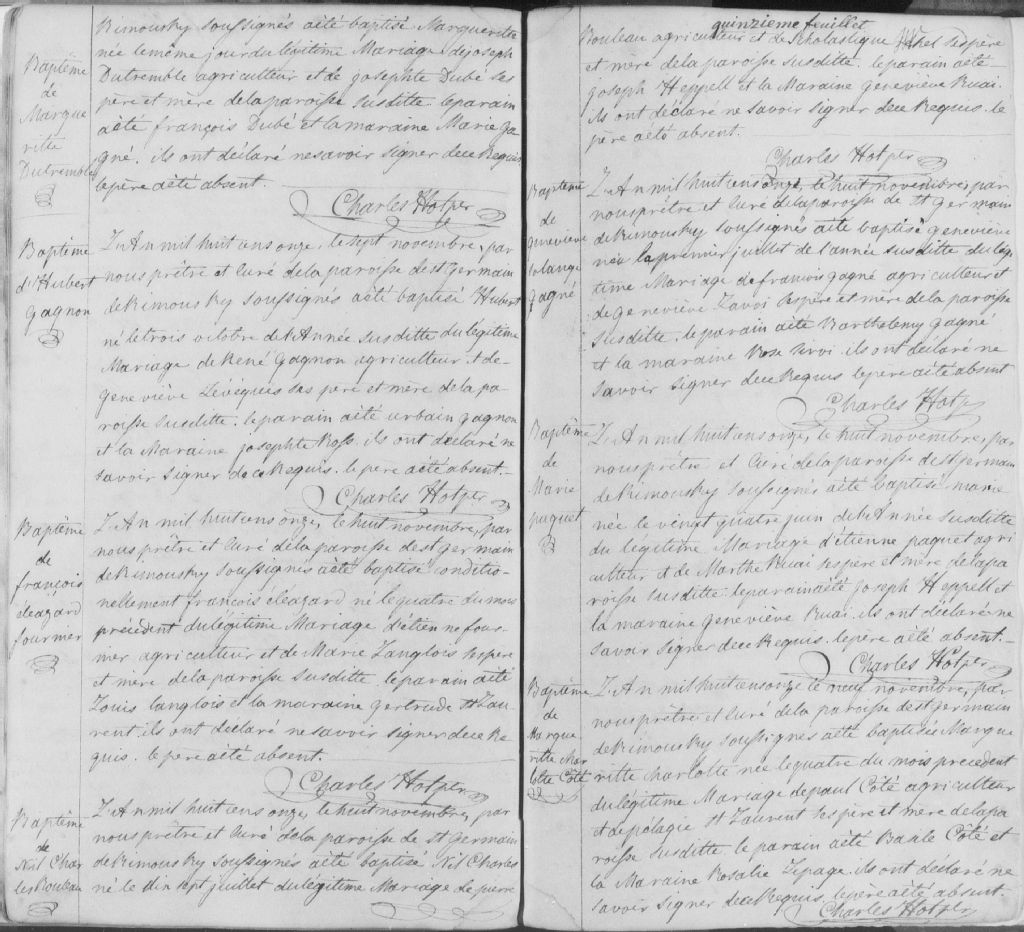 Rimousky soussignés aété baptisé Margueritte
née lemême jour du légitime Mariage dejoseph
Baptême
de
Margue
ritte
Dutremble
Dutremble agriculteur et de josephte Dubé ses
père et mère delaparoisse susditte. leparain
aété françois Dubé et lamaraine Marie ga
gné. ils ont déclaré nesavoir signer dece Requis
lepère aété absent.
Charles Hotper
Baptême
d'Hubert
gagnon
L'An mil huit cens onze, le sept novembre, par
nous prêtre et curé delaparoisse dest germain
deRimousky soussignés aété baptisé Hubert
né letrois octobre del'Année susditte du légitime
Mariage de René Gagnon agriculteur et de
geneviève Lévèques ses père et mère delapa
roisse susditte. leparain aété urbain gagnon
et la Maraine josephte Ross. ils ont déclaré ne
savoir signer dece Requis. lepère aété absent.
Charles Hotper
Baptême
de
françois
éleazard
fournier
L'An mil huit cens onze, le huit novembre, par
nous prêtre et curé delaparoisse dest germain
deRimousky soussignés aété baptisé conditio
nellement françois éleazard né lequatre du mois
précédent dulégitime Mariage d'étienne four
nier agriculteur et de Marie Langlois sespère
et mère delaparoisse susditte. leparain aété
Louis langlois et la maraine gertrude st Lau
rent. ils ont déclaré nesavoir signer dece Re
quis. lepère aété absent.
Charles Hotper
Baptême
de
Nil Char
les Rouleau
L'An mil huit cens onze, le huit novembre, par
nous prêtre et curé delaparoisse de st germain
deRimousky soussignés aété baptisé Nil Charles
né le dix sept juillet dulégitime Mariage de pierre
quinzieme feuillet
Rouleau agriculteur et de Scholastique sespère
et mère delaparoisse susditte. leparain aété
joseph Heppell et la Maraine geneviève Ruai.
ils ont déclaré ne savoir signer dece Requis. le
père aété absent.
Charles Hotper
Baptême
de
geneviève
solange
gagné
L'An mil huit cens onze, le huit novembre, par
nous prêtre et curé delaparoisse de st germain
deRimousky soussignés aété baptisé geneviève
née le premier juillet de l'année susditte du légi
time Mariage de francois gagné agriculteur et
de geneviève Lavoi sespère et mère delaparoisse
susditte. leparain aété Barthelemy gagné
et la maraine Rose ils ont déclaré ne
savoir signer dece Requis lepère aété absent
Charles Hotper
Baptême
de
Marie
paquet
L'An mil huit cens onze, le huit novembre, par
nous prêtre et curé delaparoisse dest germain
deRimousky soussignés aété baptisé marie
née le vingt quatre juin del'Année susditte
du légitime Mariage d'étienne paquet agri
culteur et de Marthe Ruai sespère et mère delapa
roisse susditte. leparain aété joseph Heppell et
la maraine geneviève Ruai. ils ont déclaré ne
savoir signer dece Requis. lepère aété absent.
Charles Hotper
Baptême
de
Margue
ritte char
lotte Côté
L'An mil huit cens onze le neuf novembre, par
nous prêtre et curé delaparoisse dest germain
deRimousky soussignés aété baptisée Margue
ritte charlotte née lequatre du mois precedent
dulégitime Mariage depaul Côté agriculteur
et depélagie st Laurent sespère et mère delapa
roisse susditte. le parain aété Basile Côté et
la Maraine Rosalie Lepage. ils ont déclaré ne
savoir signer dece Requis. lepère aété absent.
Charles Hotper